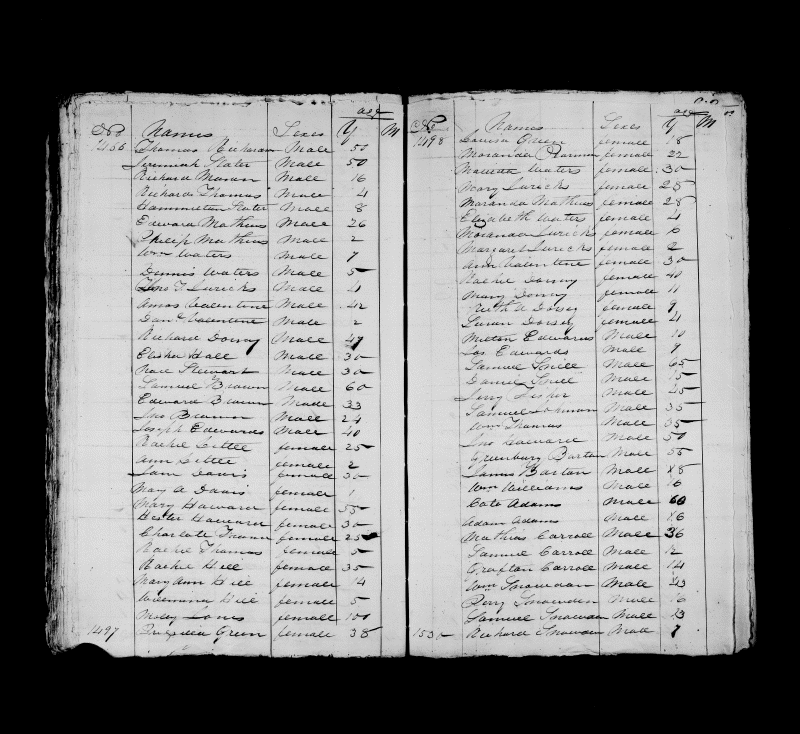 age
No Names Sexes Y M
1456 Thomas Male 50
Jeremiah Slater Male 50
Richard Male 16
Richard Thomas Male 4
Slater Male 8
Edward Mathius Male 26
Philip Mathius Male 2
Wm Waters Male 7
Dennis Waters Male 5
Male 4
Amos Valentine Male 42
Danl Valentine Male 2
Richard Dorsey Male 47
Elisha Hall Male 30
Stewart Male 30
Samuel Brown Male 60
Edward Brown Male 33
Jno Male 24
Joseph Edwards Male 40
Rachel Little female 25
Ann Little female 2
Jane Davis female 30
Mary A Davis female 1
Mary Howard female 55
Hester Howard female 30
Charlote female 25
Rachel Thomas female 5
Rachel Hill female 35
Mary Ann Hill female 14
Hill female 5
Molly Jones female 100
1497 Green female 38
age
No Names Sexes Y M
1498 Louisa Green female 18
Moranda female 22
Waters female 30
Mary female 25
Maranda Mathius female 28
Elizabeth Waters female 4
Moranda female
Margaret female 2
Ann Valentine female 30
Rachel Dorsey female 40
Mary Dorsey female 11
Ruth A Dorsey female 9
Susan Dorsey female 4
Milton Edwards Male 10
Jas Edwards Male 9
Samuel Male 65
Daniel Male 15
Jerry Male 45
Samuel Male 35
Wm Thomas Male 35
Jno Howard Male 50
Greenbury Barton Male 55
James Barton Male 18
Wm Williams Male 16
Cato Adams Male 60
Adam Adams Male 16
Mathias Carroll Male 36
Samuel Carroll Male 12
Grafton Carroll Male 14
Wm Snowden Male 43
Perry Snowden Male 16
Samuel Snowden Male 13
1530 Richard Snowden Male 7